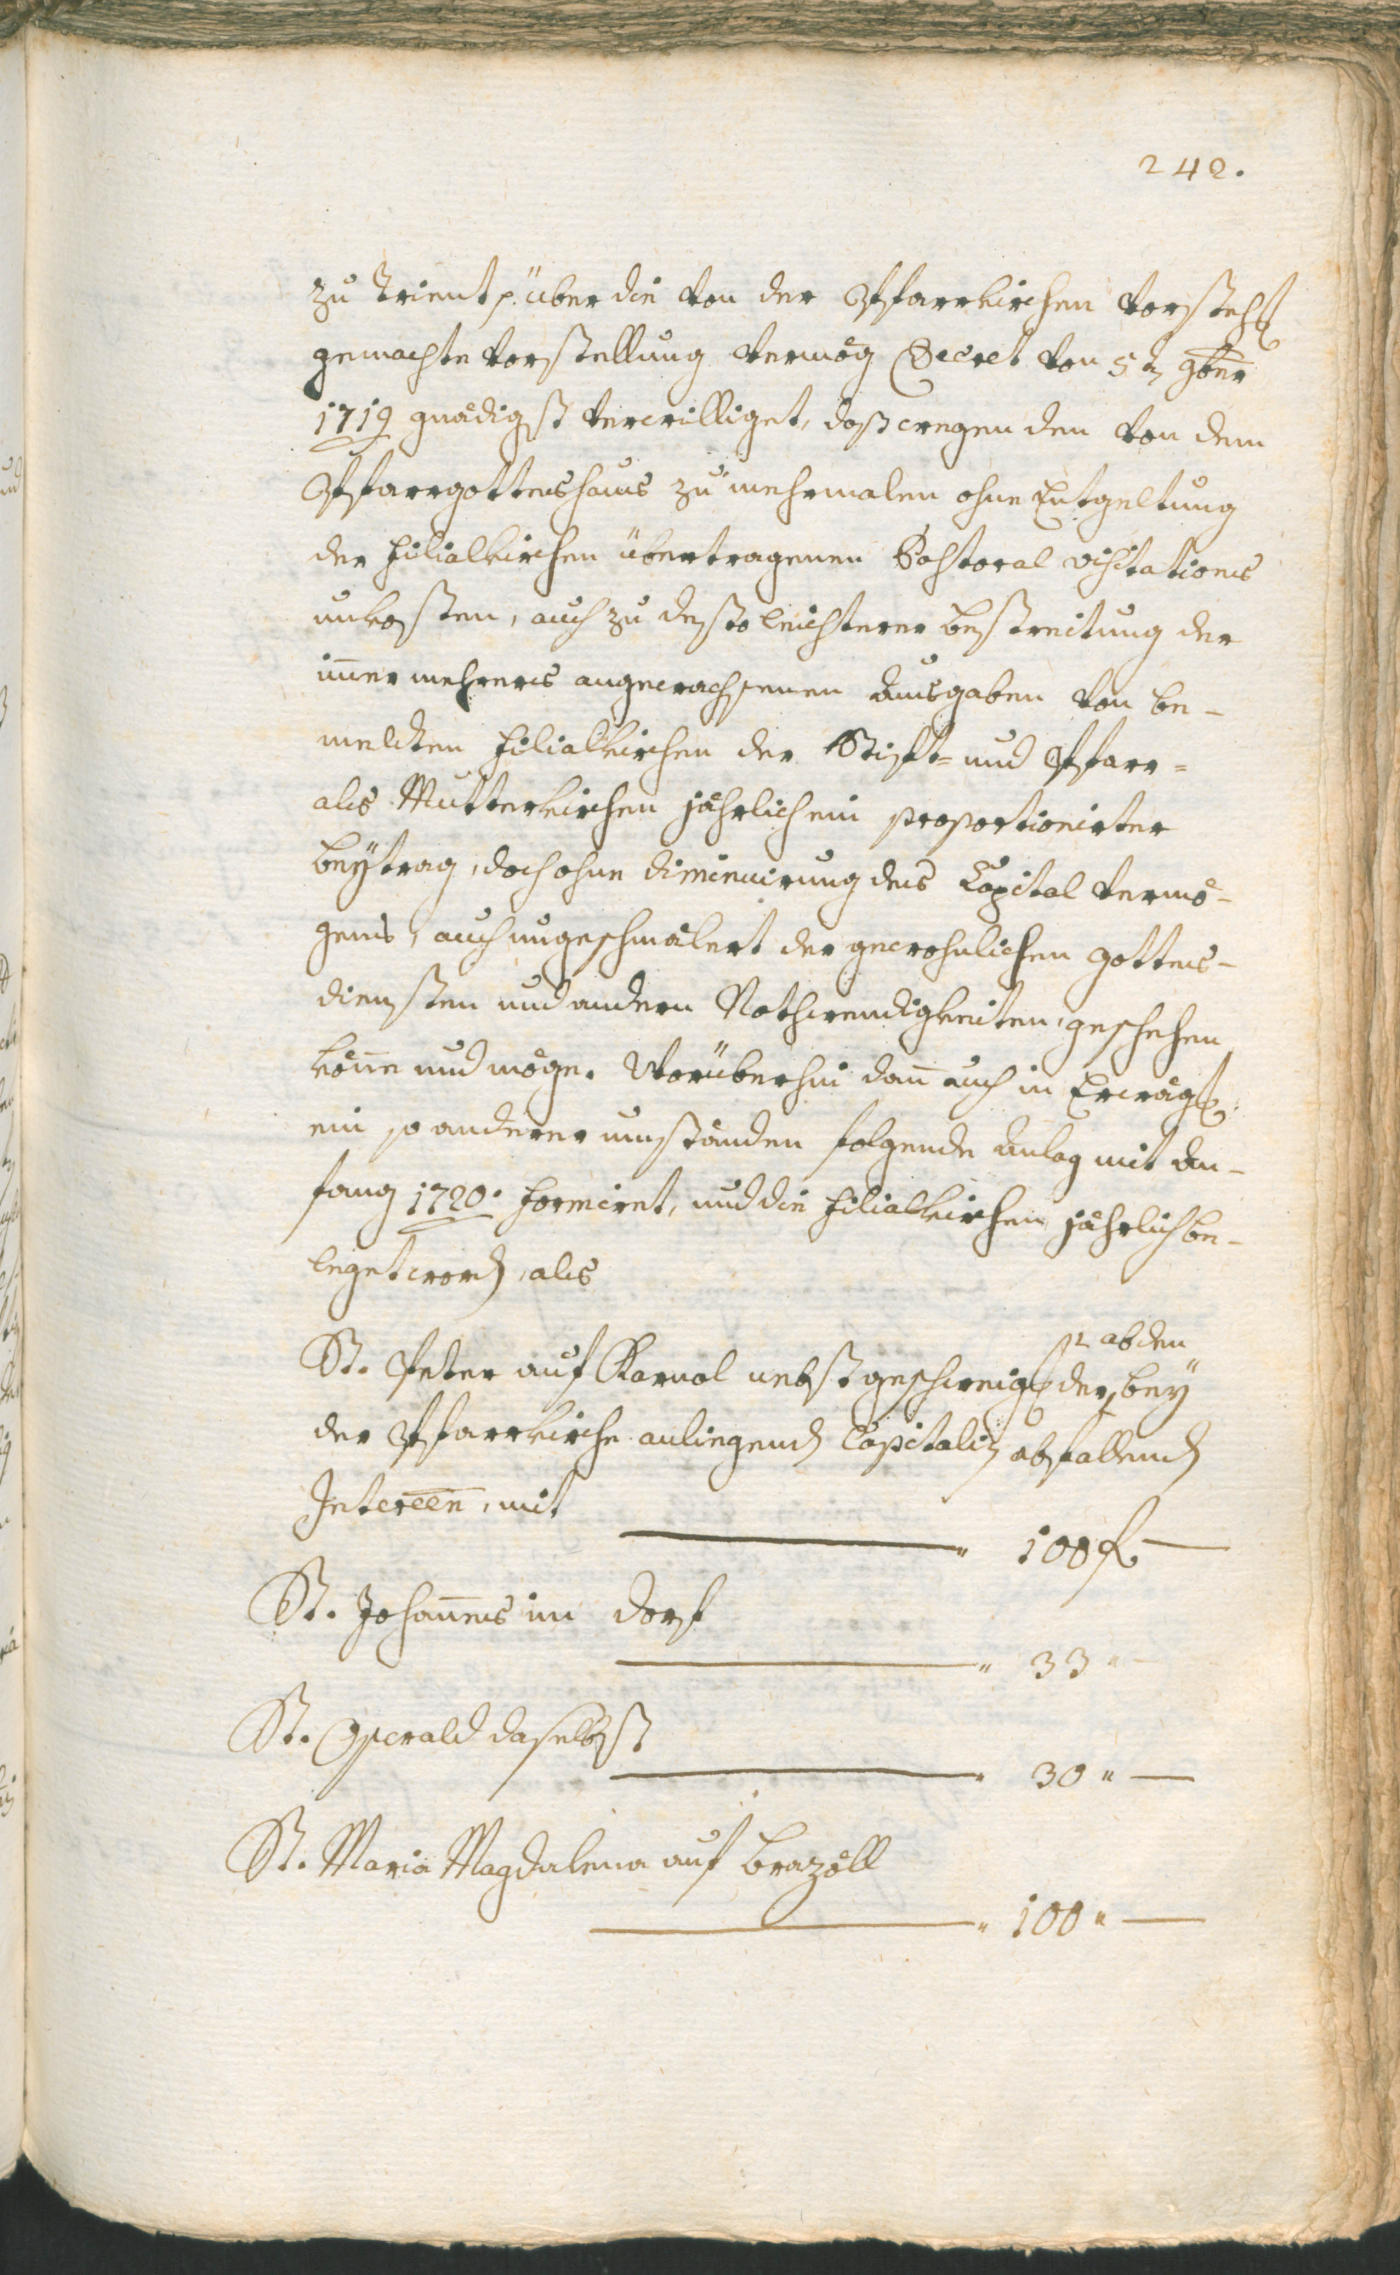 242.
zu Trient p. über die von der Pfarrkirchen Vorstehg
gemachte Vorstellung vermög Decret von 5tn 9ber
1719 gnädigst verwilliget, daß wegen den von dem
Pfarrgotteshaus zu mehrmalen ohne Entgeltung
der Filialkirchen übertragenen Pastoral Visitations
unkosten, auch zu desto leichterer bestreitung der
im̄er mehrers angewachsenen Ausgaben von be-
melden Filialkirchen der Stift- und Pfarr-
als Mutterkirchen jährlich ein proportionirter
beÿtrag, doch ohne diminuirung des Capital vermö-
gens, auch ungeschmälert der gewohnlichen Gottes-
diensten und andern Nothwendigkeiten, geschehen
kön̄e und möge. Worüberhin dan̄ auch in Erwägg
ein so anderer umständen folgende Anlag mit An-
fang 1720. formirt, und die Filialkirchen jährlich be-
legt word, als
ab den
St. Peter auf Karnol nebst geschweigg der beÿ
der Pfarrkirche anliegend Capitalien abfallend
Intereen, mit
100 f —
St. Johan̄es im Dorf
33 "
St. Oswald daselbst
30 " —
St. Maria Magdalena auf Brazöll
100 " —